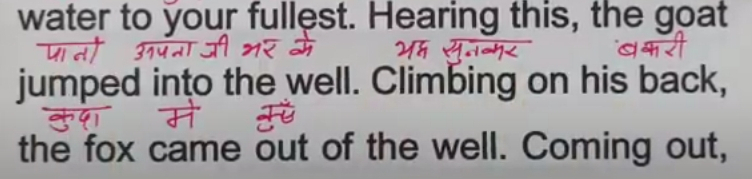 water to your fullest. Hearing this, the goat
पानी अपना जी भर के यह सुनकर बकरी
jumped into the well. Climbing on his back,
कुदा में कुएँ
the fox came out of the well. Coming out,